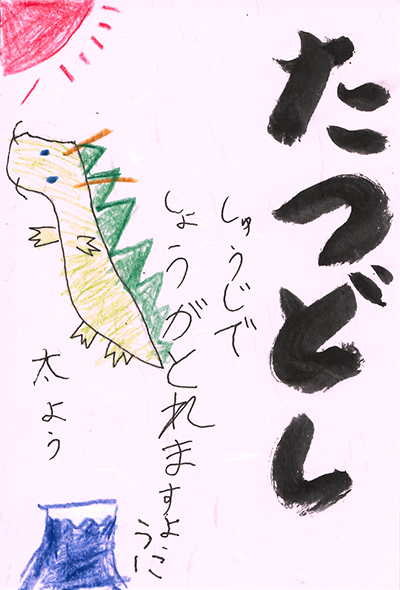 たつどし
しゅうじで
しょうがとれますよに
うに
太よう